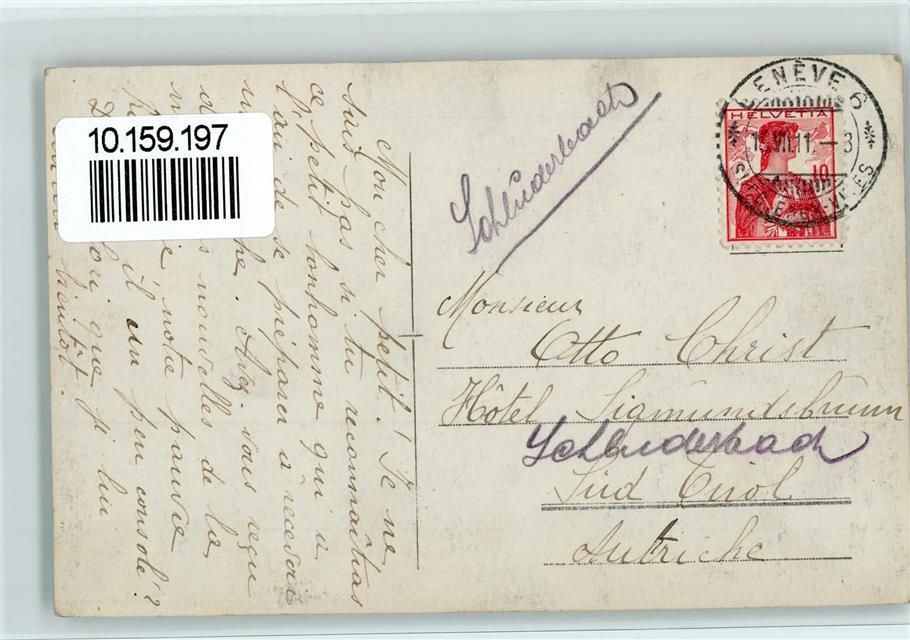 10.159.197
Mon cher petit! Je ne
sais pas si tu reconnaîtras
ce petit bonhomme qui a
l'air de se préparer à recevoir
une
che. Avez-vous reçu
d
s nouvelles de la
e notre pauvre
il un peu consolé?
que je lui
bientôt.
Schluderbach
GENÈVE 6
HELVETIA
VII.11.-8
10
Monsieur
Otto Christ
Hôtel Sigmundsbrunn
Schluderbach
Süd Tirol
Autriche